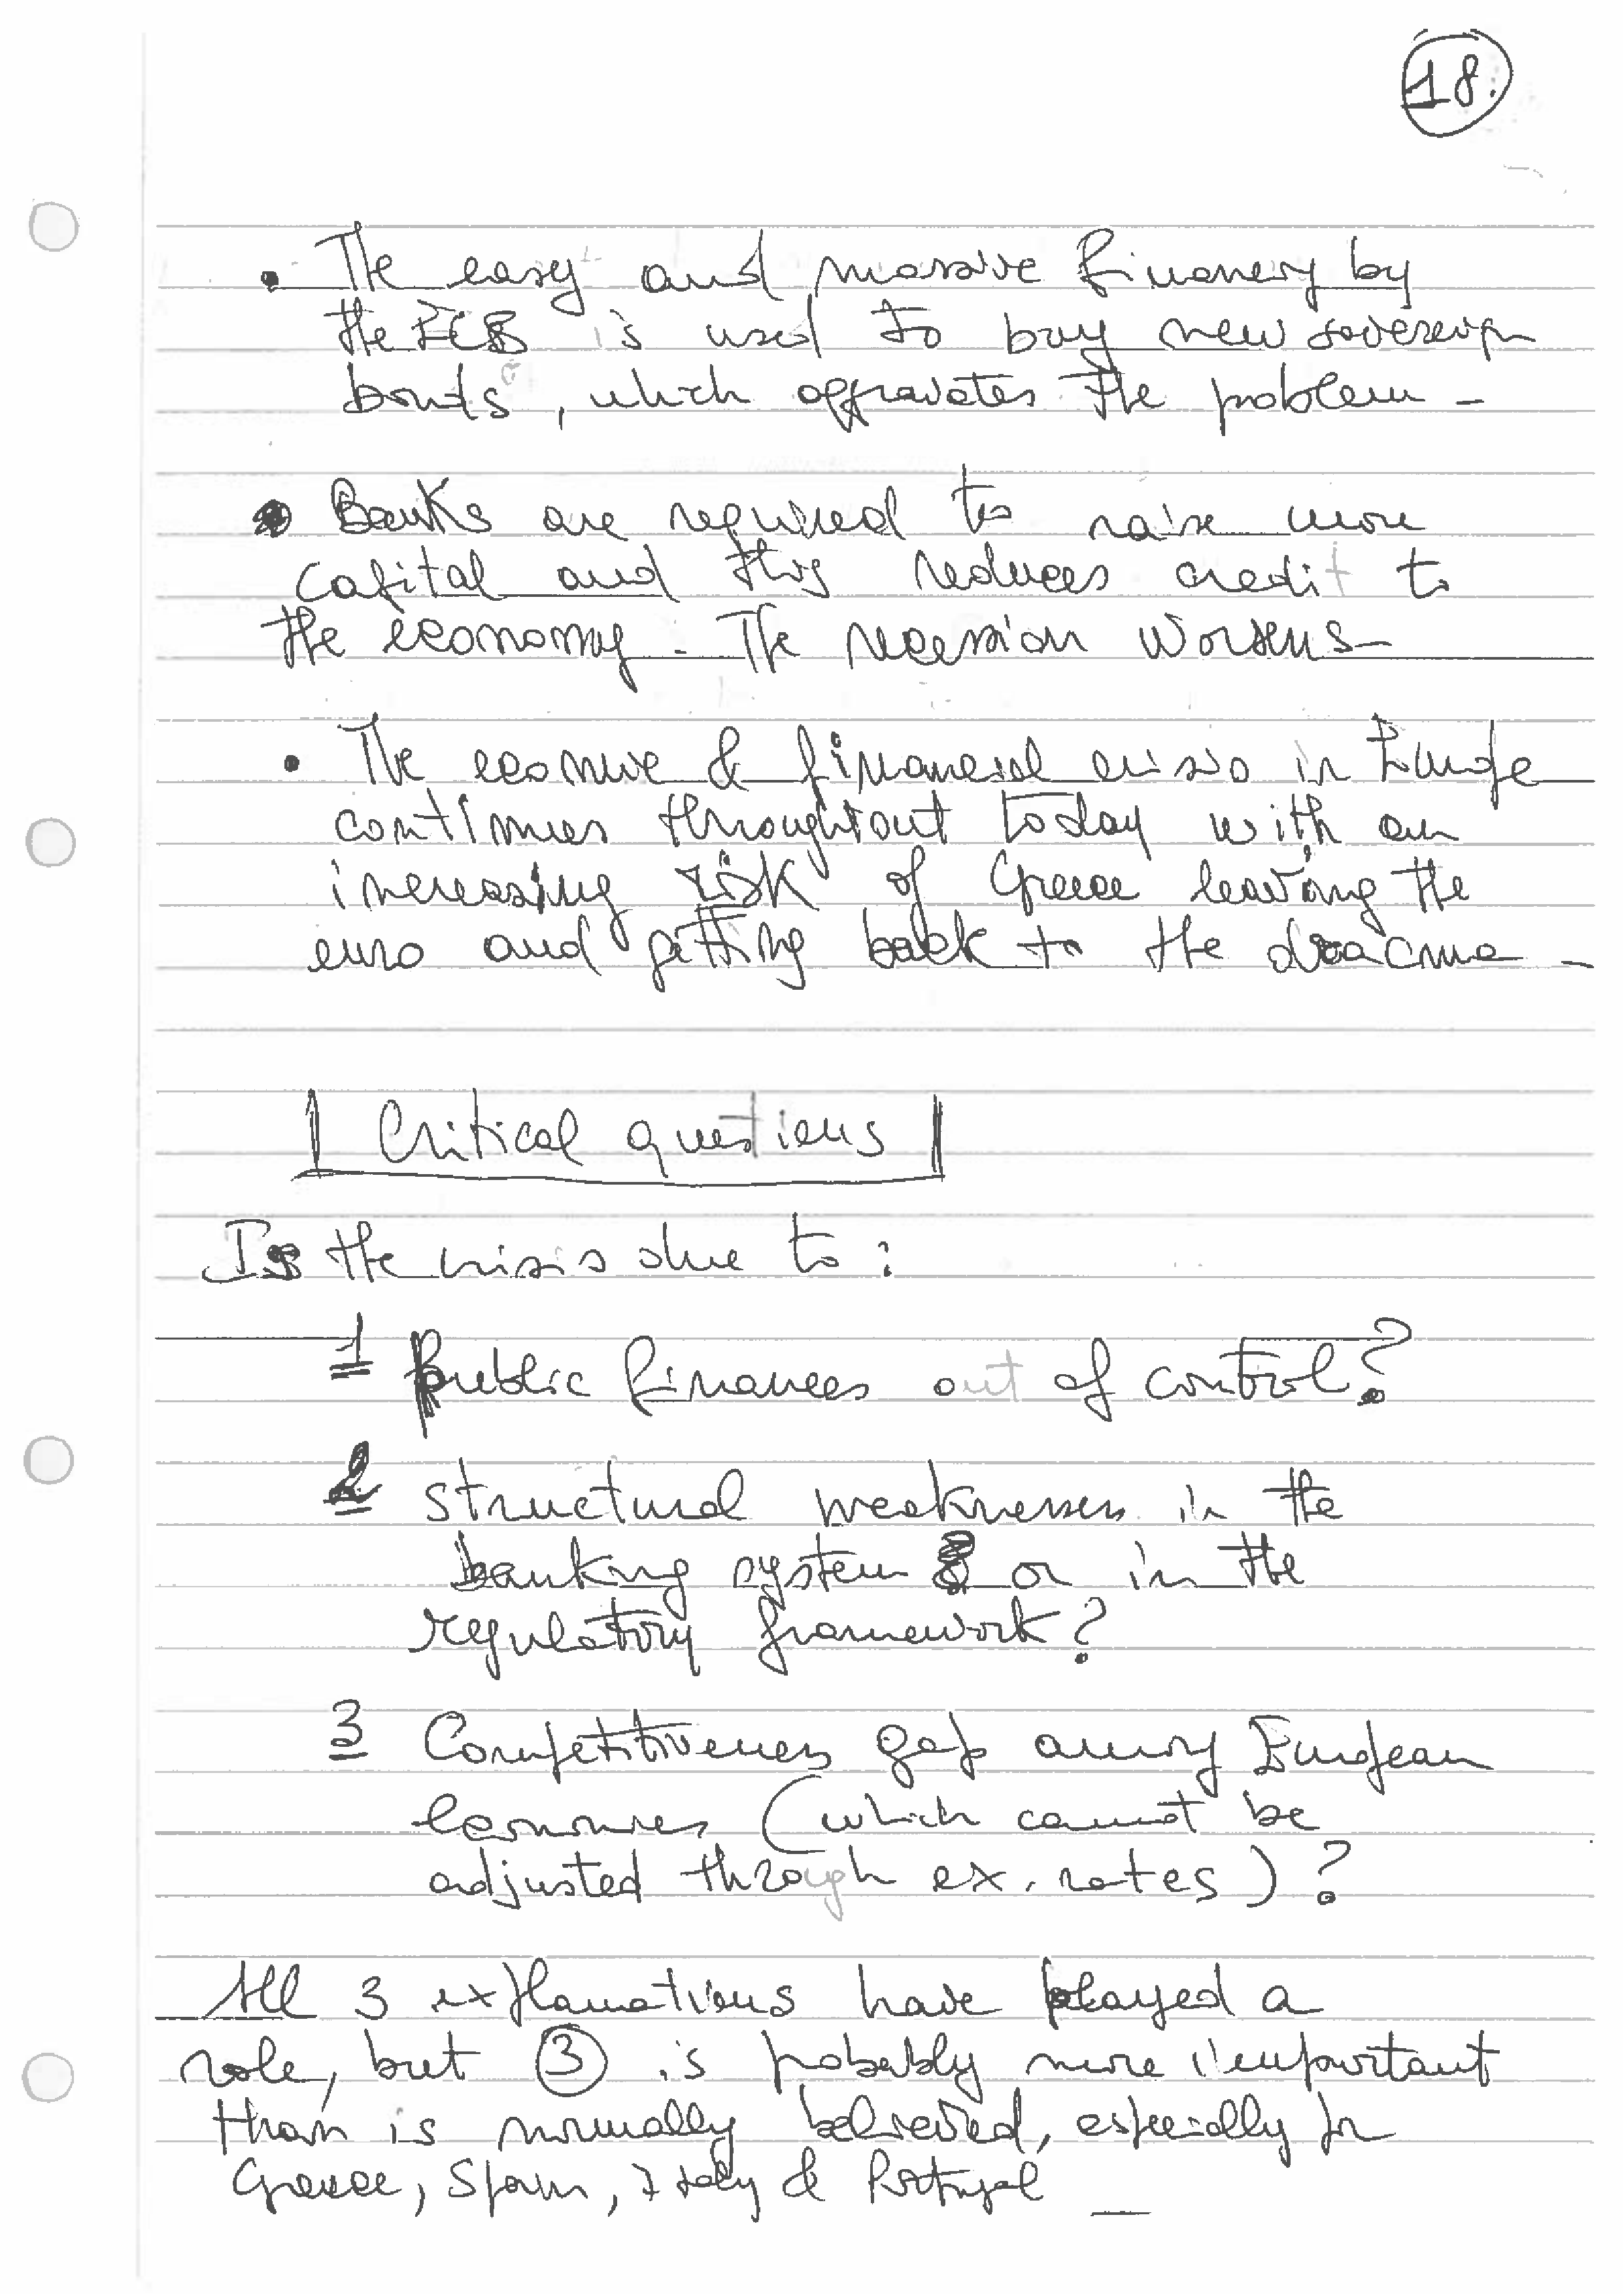 18.
• The easy and massive financing by
the ECB is used to buy new sovereign
bonds, which aggravates the problem -
• Banks are required to raise more
capital and this reduces credit to
the economy - The recession worsens -
• The economic & financial crisis in Europe
continues throughtout today with an
increasing risk of Greece leaving the
euro and getting back to the dracma -
Critical questions
Is the crisis due to:
1 public finances out of control?
2 structural weaknesses in the
banking system or in the
regulatory framework?
3 Competitiveness gap among European
economies (which cannot be
adjusted through ex. rates)?
All 3 explanations have played a
role, but 3 is probably more important
than is normally believed, especially for
Greece, Spain, Italy & Portugal —